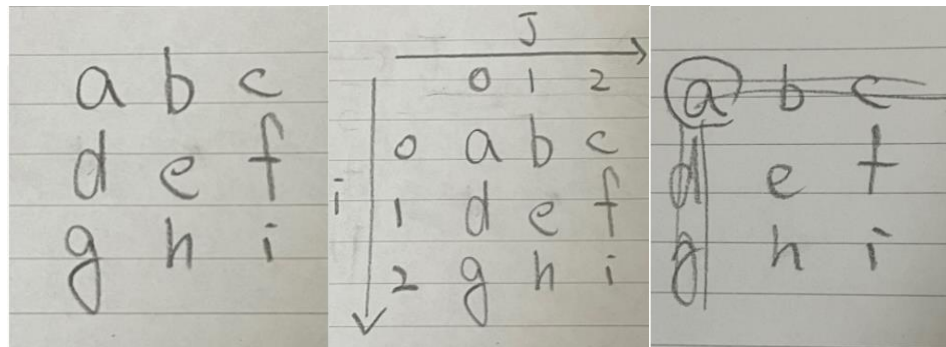 a b c
d e f
g h i
J
0 1 2
0 a b c
i 1 d e f
2 g h i
a b c
d e f
g h i